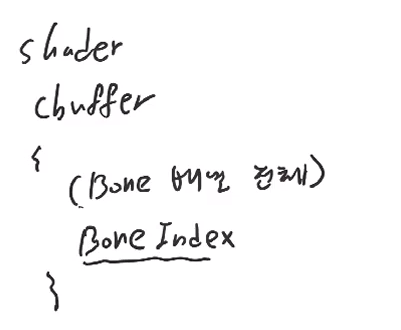 shader
cbuffer
{
(Bone 배열 전체)
Bone Index
}